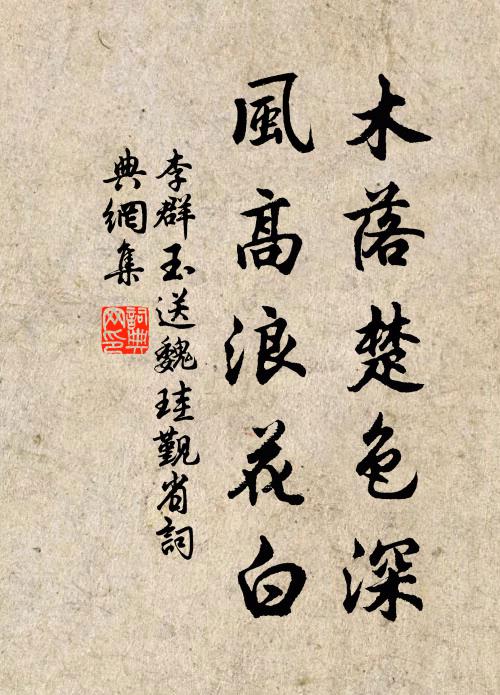 木落楚色深
風高浪花白
李群玉送魏珪觐省詞
典網集
詞典
网印